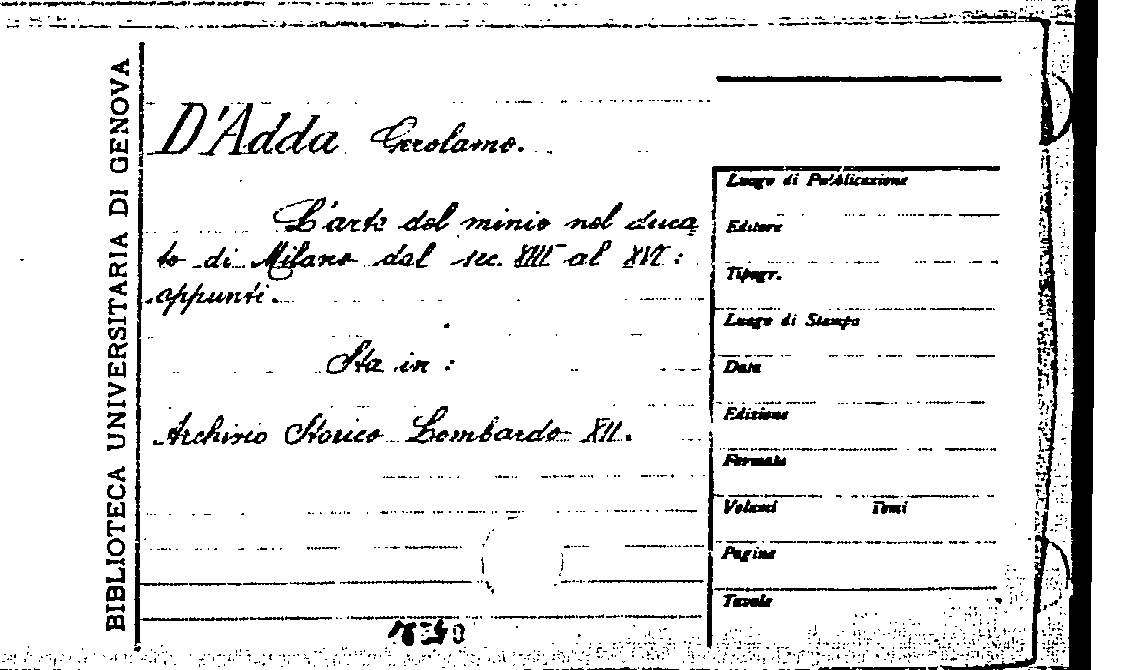 BIBLIOTECA UNIVERSITARIA DI GENOVA
D'Adda Gerolamo.
L'arte del minio nel duca
to di Milano dal sec. XIII al XVI:
appunti.
Sta in:
Archivio Storico Lombardo XII.
Luogo di Pubblicazione
Editore
Tipogr.
Luogo di Stampa
Data
Edizione
Formato
Volumi Tomi
Pagine
Tavole